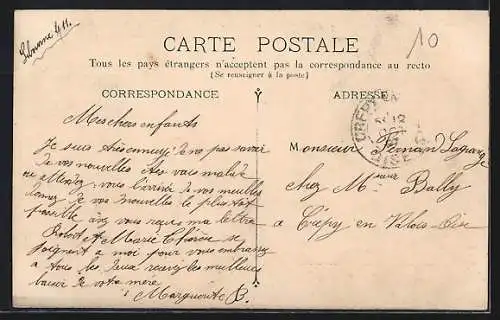 10
CARTE POSTALE
Tous les pays étrangers n'acceptent pas la correspondance au recto
(Se renseigner à la poste)
CORRESPONDANCE
ADRESSE
Mes chers enfants
Je suis très ennuyé de ne pas avoir
de vos nouvelles
vous l'arrivée de vos meubles
donnez de vos nouvelles le plus tôt
possible avez vous reçu ma lettre
Robert et Marie Thérèse se
joignent a moi pour vous embrasser
a tous les deux recevez les meilleurs
baiser de votre mère
Marguerite B.
Monsieur Fernand Lagrange
chez Mr Bally
a Crépy en Valois Oise